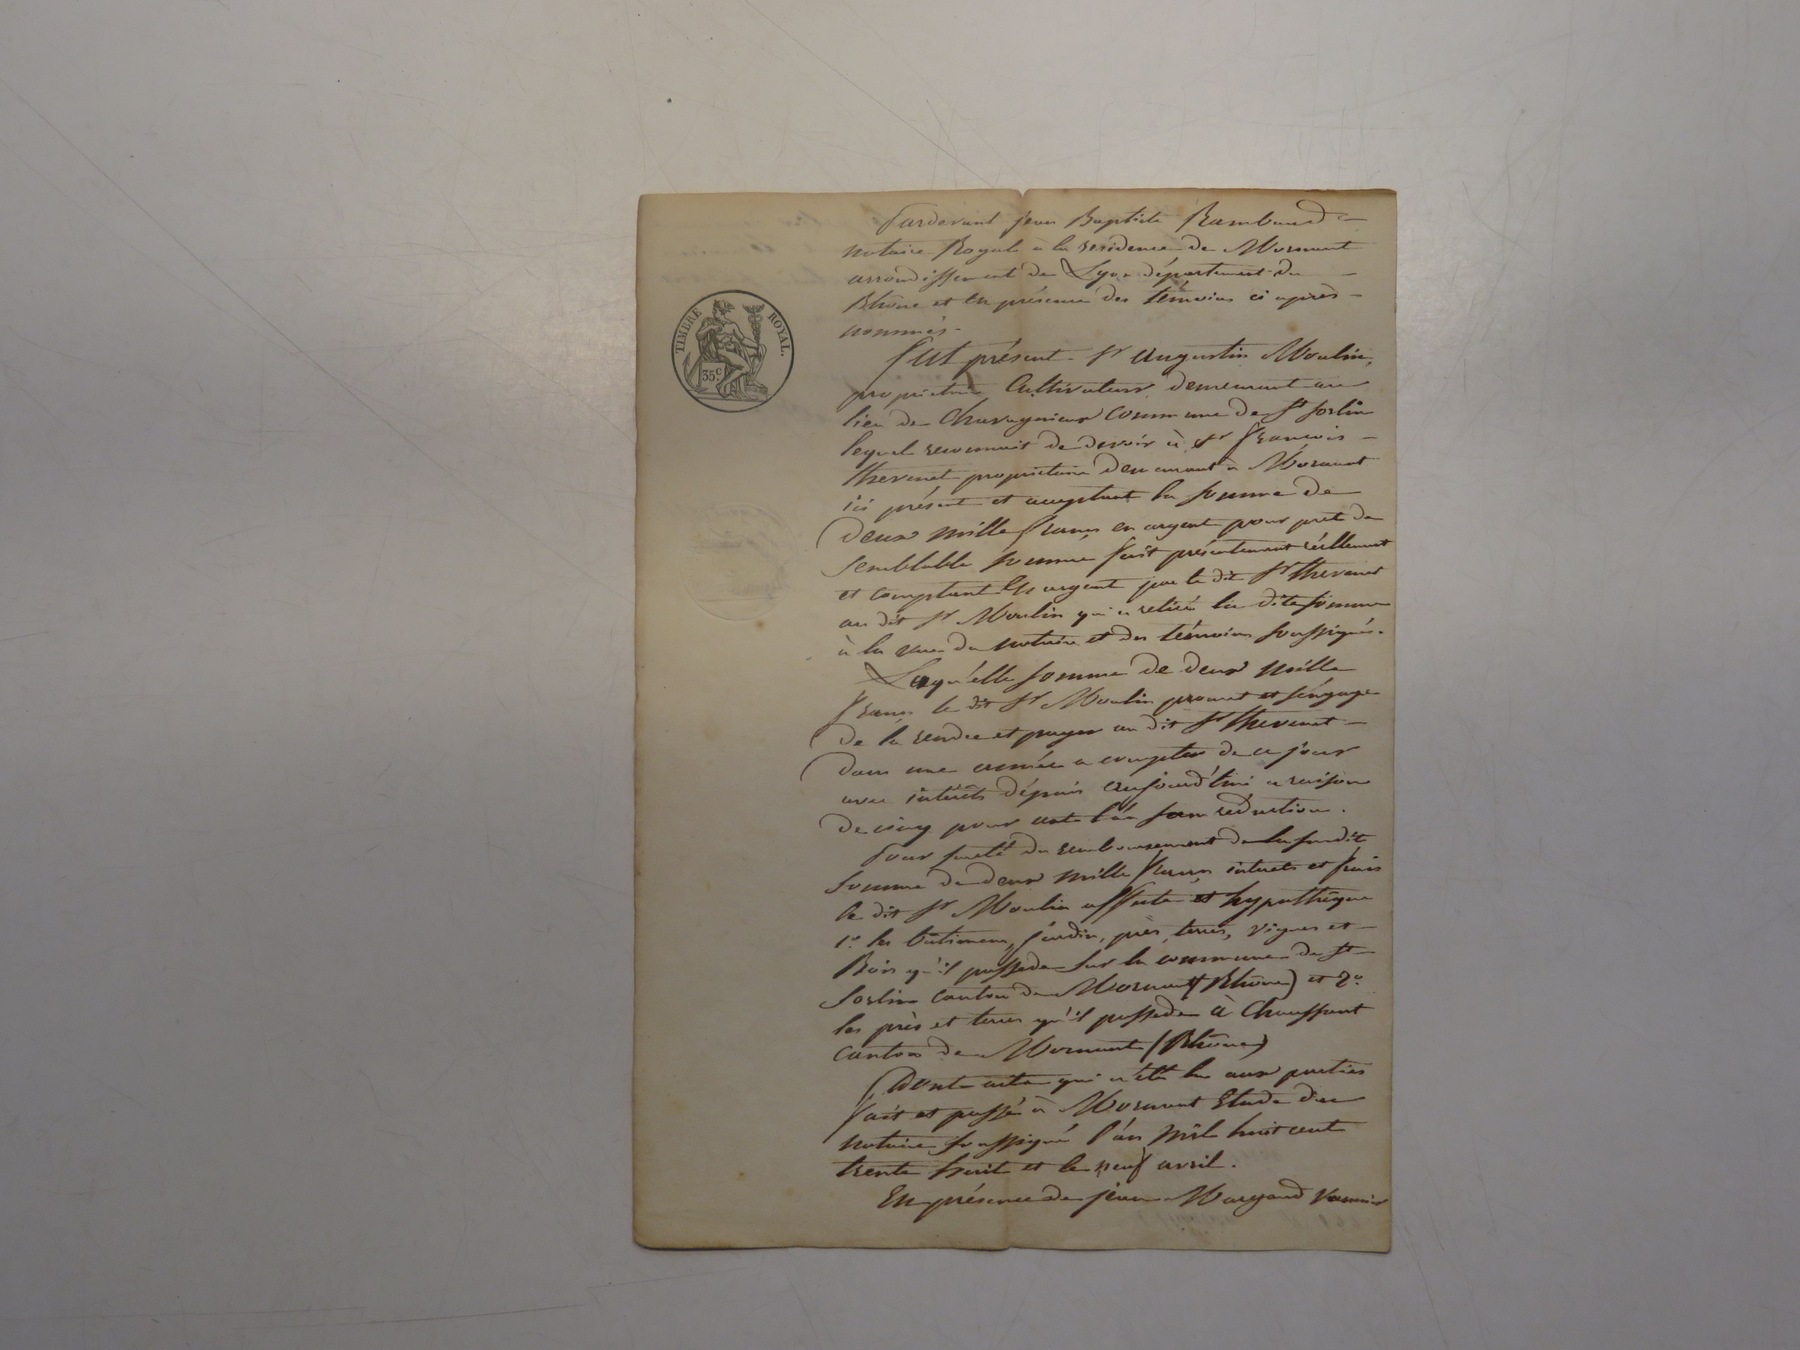 TIMBRE ROYAL.
35c.
Pardevant jean Baptiste Rambaud
notaire Royale à la residence de Mornant
arrondissement de Lyon département du
Rhône et en présence des témoins ci après
nommés.
fut présent Sr Augustin Moulin,
propriétaire Cultivateur demeurant au
lieu de Commune de St Sorlin
lequel reconnait de devoir à Sr François
thevenet propriétaire demeurant à Mornant
ici présent et acceptant la somme de
deux mille francs en argent pour prêt de
semblable somme fait présentement réellement
et comptant en argent par le dit Sr thevenet
au dit Sr Moulin qui a retiré la dite somme
à la vue du notaire et des témoins soussignés.
Laqu'elle somme de deux mille
francs le dit Sr Moulin promet et s'engage
de la rendre et payer au dit Sr thevenet
dans une année a compter de ce jour
avec intérêts dépuis aujourd'hui a raison
de cinq pour cent l'an sans réduction.
Pour sureté du remboursement de la susdite
somme de deux mille francs interets et frais
le dit Sr Moulin affecte et hypothèque
1o. les bâtimens, jardin, près, terres, vignes et
Bois qu'il possede sur la commune de St
Sorlin canton de Mornant (Rhône) et 2o.
les près et terres qu'il possede à Chaussant
canton de Mornant (Rhône)
Dont acte qui a été lu aux parties
fait et passé à Mornant Etude du
notaire soussigné l'an mil huit cent
trente huit et le neuf avril.
En présence de jean